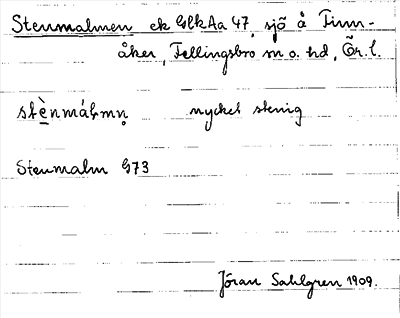 Stenmalmen ek GlkAa 47, sjö å Finn-
åker, Fellingsbro sn o. hd, Ör. l.
stè̱nmáɫmn̥ mycket stenig
Stenmalm G73
Jöran Sahlgren 1909.